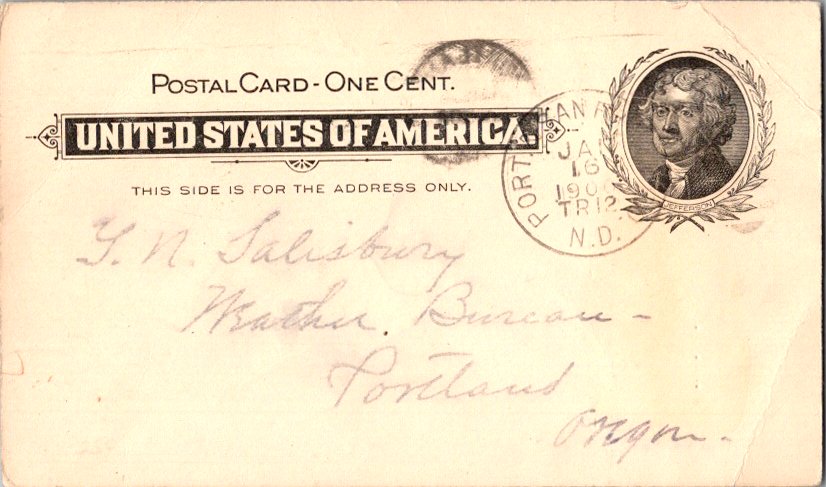 POSTAL CARD - ONE CENT.
UNITED STATES OF AMERICA.
THIS SIDE IS FOR THE ADDRESS ONLY.
JEFFERSON
PORT. & SAN FRAN
JAN
16
190
TR12
N.D.
Salisbury
Weather Bureau -
Portland
Oregon -